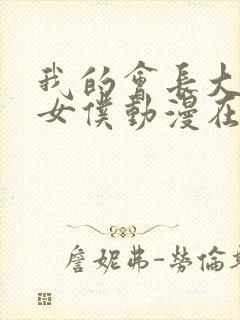 我的會長大
女僕動漫在
詹妮弗-勞倫斯